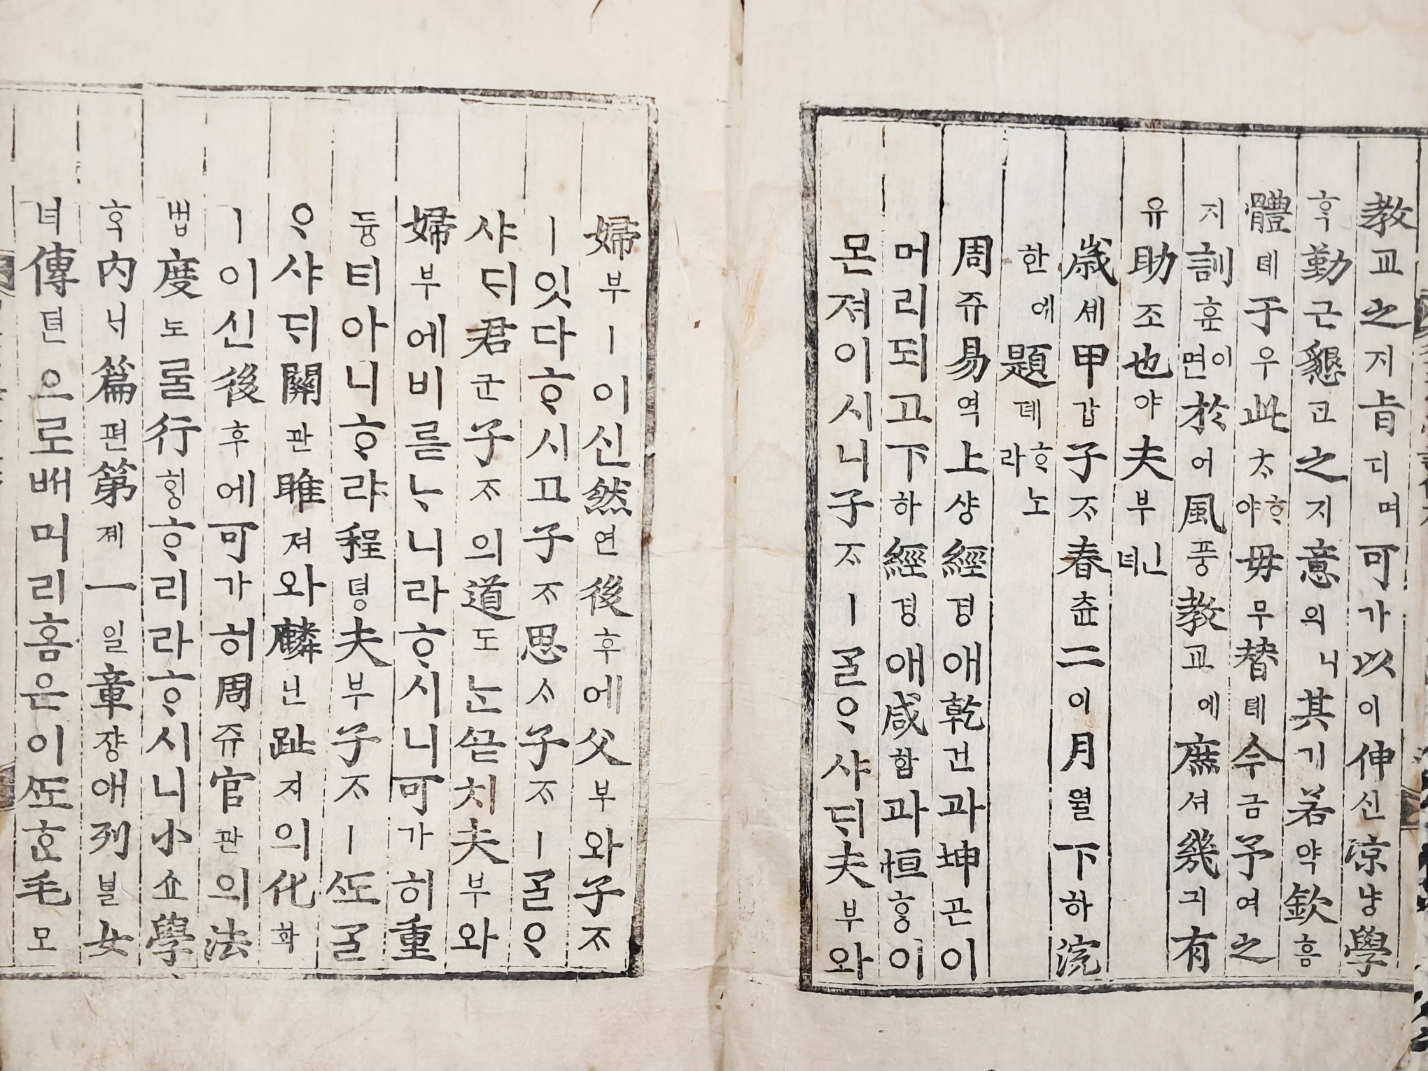 教교之지旨디며可가以이伸신凉냥學
ᄒᆞᆨ勤근懇ᄀᆞᆫ之지意의니其기若약欽흠
體톄于우此ᄎᆞᄒᆞ야毋무替톄今금予여之
지訓훈이면於어風풍敎교에庶셔幾긔有
유助조也야夫부닌뎌
歲셰甲갑子ᄌᆞ春츈二이月월下하浣
한에題뎨ᄒᆞ노라
周쥬易역上샹經경애乾건과坤곤이
머리되고下하經경애咸함과恒ᄒᆞᆼ이
몬져이시니子ᄌᆞㅣᄀᆞᆯᄋᆞ샤ᄃᆡ夫부와
婦부ㅣ이신然연後후에父부와子ᄌᆞ
ㅣ잇다ᄒᆞ시고子ᄌᆞ思ᄉᆞ子ᄌᆞㅣᄀᆞᆯᄋᆞ
샤ᄃᆡ君군子ᄌᆞ의道도ᄂᆞᆫ싣치夫부와
婦부에비른ᄂᆞ니라ᄒᆞ시니可가히重
듕티아니ᄒᆞ랴程뎡夫부子ᄌᆞㅣᄯᅩᄀᆞᆯ
ᄋᆞ샤ᄃᆡ關관雎져와麟닌趾지의化화
ㅣ이신後후에可가히周쥬官관의法
법度도ᄅᆞᆯ行ᄒᆡᆼᄒᆞ리라ᄒᆞ시니小쇼學
ᄒᆞᆨ內ᄂᆡ篇편第뎨一일章쟝애列녈女
녀傳뎐으로ᄡᅥ머리홈은이ᄯᅩᄒᆞᆫ毛모